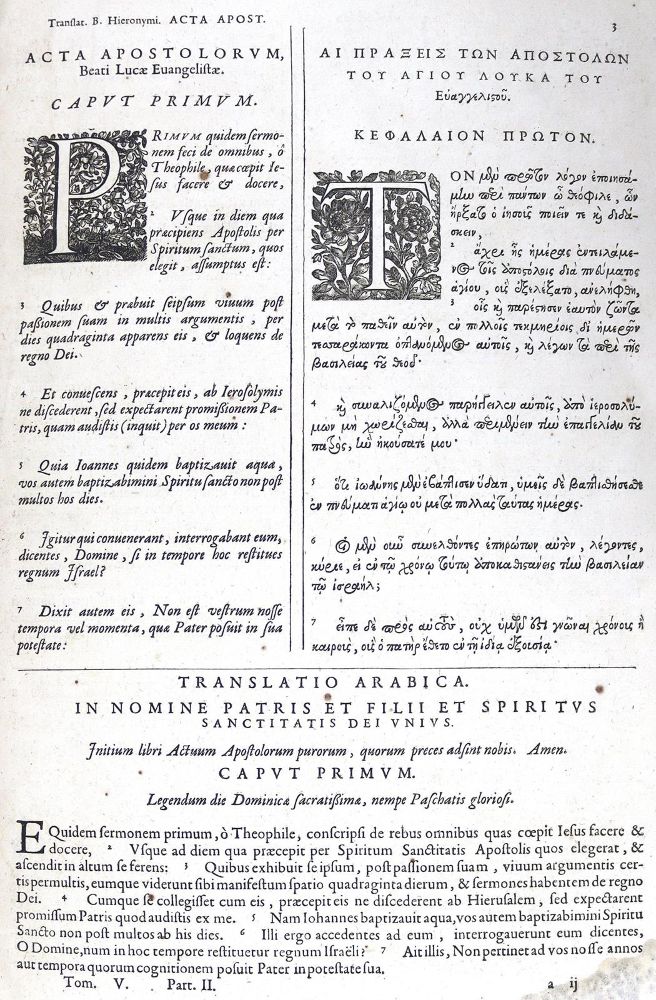 Translat. B. Hieronymi. ACTA APOST.
3
ACTA APOSTOLORVM,
Beati Lucæ Euangelistæ.
CAPVT PRIMVM.
PRIMVM quidem sermo-
nem feci de omnibus, ô
Theophile, quæ cœpit Ie-
sus facere & docere,
2 Vsque in diem qua
præcipiens Apostolis per
Spiritum sanctum, quos
elegit, assumptus est:
3 Quibus & præbuit seipsum viuum post
passionem suam in multis argumentis, per
dies quadraginta apparens eis, & loquens de
regno Dei.
4 Et conuescens, præcepit eis, ab Ierosolymis
ne discederent, sed expectarent promissionem Pa-
tris, quam audistis (inquit) per os meum:
5 Quia Ioannes quidem baptizauit aqua,
vos autem baptizabimini Spiritu sancto non post
multos hos dies.
6 Igitur qui conuenerant, interrogabant eum,
dicentes, Domine, si in tempore hoc restitues
regnum Israel?
7 Dixit autem eis, Non est vestrum nosse
tempora vel momenta, quæ Pater posuit in sua
potestate:
ΑΙ ΠΡΑΞΕΙΣ ΤΩΝ ΑΠΟΣΤΟΛΩΝ
ΤΟΥ ΑΓΙΟΥ ΛΟΥΚΑ ΤΟΥ
Εὐαγγελιστοῦ.
ΚΕΦΑΛΑΙΟΝ ΠΡΩΤΟΝ.
ΤΟΝ μὲν πρῶτον λόγον ἐποιησά-
μην περὶ πάντων ὦ θεόφιλε, ὧν
ἤρξατο ὁ ἰησοῦς ποιεῖν τε καὶ διδά-
σκειν,
2 ἄχρι ἧς ἡμέρας ἐντειλάμε-
νος τοῖς ἀποστόλοις διὰ πνεύματος
ἁγίου, οὓς ἐξελέξατο, ἀνελήφθη,
3 οἷς καὶ παρέστησεν ἑαυτὸν ζῶντα
μετὰ τὸ παθεῖν αὐτὸν, ἐν πολλοῖς τεκμηρίοις δι' ἡμερῶν
τεσσαράκοντα ὀπτανόμενος αὐτοῖς, καὶ λέγων τὰ περὶ τῆς
βασιλείας τοῦ θεοῦ·
4 καὶ συναλιζόμενος παρήγγειλεν αὐτοῖς, ἀπὸ ἱεροσολύ-
μων μὴ χωρίζεσθαι, ἀλλὰ περιμένειν τὴν ἐπαγγελίαν τοῦ
πατρὸς, ἣν ἠκούσατέ μου·
5 ὅτι ἰωάννης μὲν ἐβάπτισεν ὕδατι, ὑμεῖς δὲ βαπτισθήσεσθε
ἐν πνεύματι ἁγίῳ οὐ μετὰ πολλὰς ταύτας ἡμέρας.
6 Οἱ μὲν οὖν συνελθόντες ἐπηρώτων αὐτὸν, λέγοντες,
κύριε, εἰ ἐν τῷ χρόνῳ τούτῳ ἀποκαθιστάνεις τὴν βασιλείαν
τῷ ἰσραήλ;
7 εἶπε δὲ πρὸς αὐτοὺς, οὐχ ὑμῶν ἐστι γνῶναι χρόνους ἢ
καιροὺς, οὓς ὁ πατὴρ ἔθετο ἐν τῇ ἰδίᾳ ἐξουσίᾳ·
TRANSLATIO ARABICA.
IN NOMINE PATRIS ET FILII ET SPIRITVS
SANCTITATIS DEI VNIVS.
Initium libri Actuum Apostolorum purorum, quorum preces adsint nobis. Amen.
CAPVT PRIMVM.
Legendum die Dominicæ sacratissimæ, nempe Paschatis gloriosi.
EQuidem sermonem primum, ò Theophile, conscripsi de rebus omnibus quas cœpit Iesus facere &
docere, 2 Vsque ad diem qua præcepit per Spiritum Sanctitatis Apostolis quos elegerat, &
ascendit in altum se ferens: 3 Quibus exhibuit se ipsum, post passionem suam, viuum argumentis cer-
tis permultis, eumque viderunt sibi manifestum spatio quadraginta dierum, & sermones habentem de regno
Dei. 4 Cumque se collegisset cum eis, præcepit eis ne discederent ab Hierusalem, sed expectarent
promissum Patris quod audistis ex me. 5 Nam Iohannes baptizauit aqua, vos autem baptizabimini Spiritu
Sancto non post multos ab his dies. 6 Illi ergo accedentes ad eum, interrogauerunt eum dicentes,
O Domine, num in hoc tempore restituetur regnum Israëli? 7 Ait illis, Non pertinet ad vos nosse annos
aut tempora quorum cognitionem posuit Pater in potestate sua.
Tom. V. Part. II. a ij